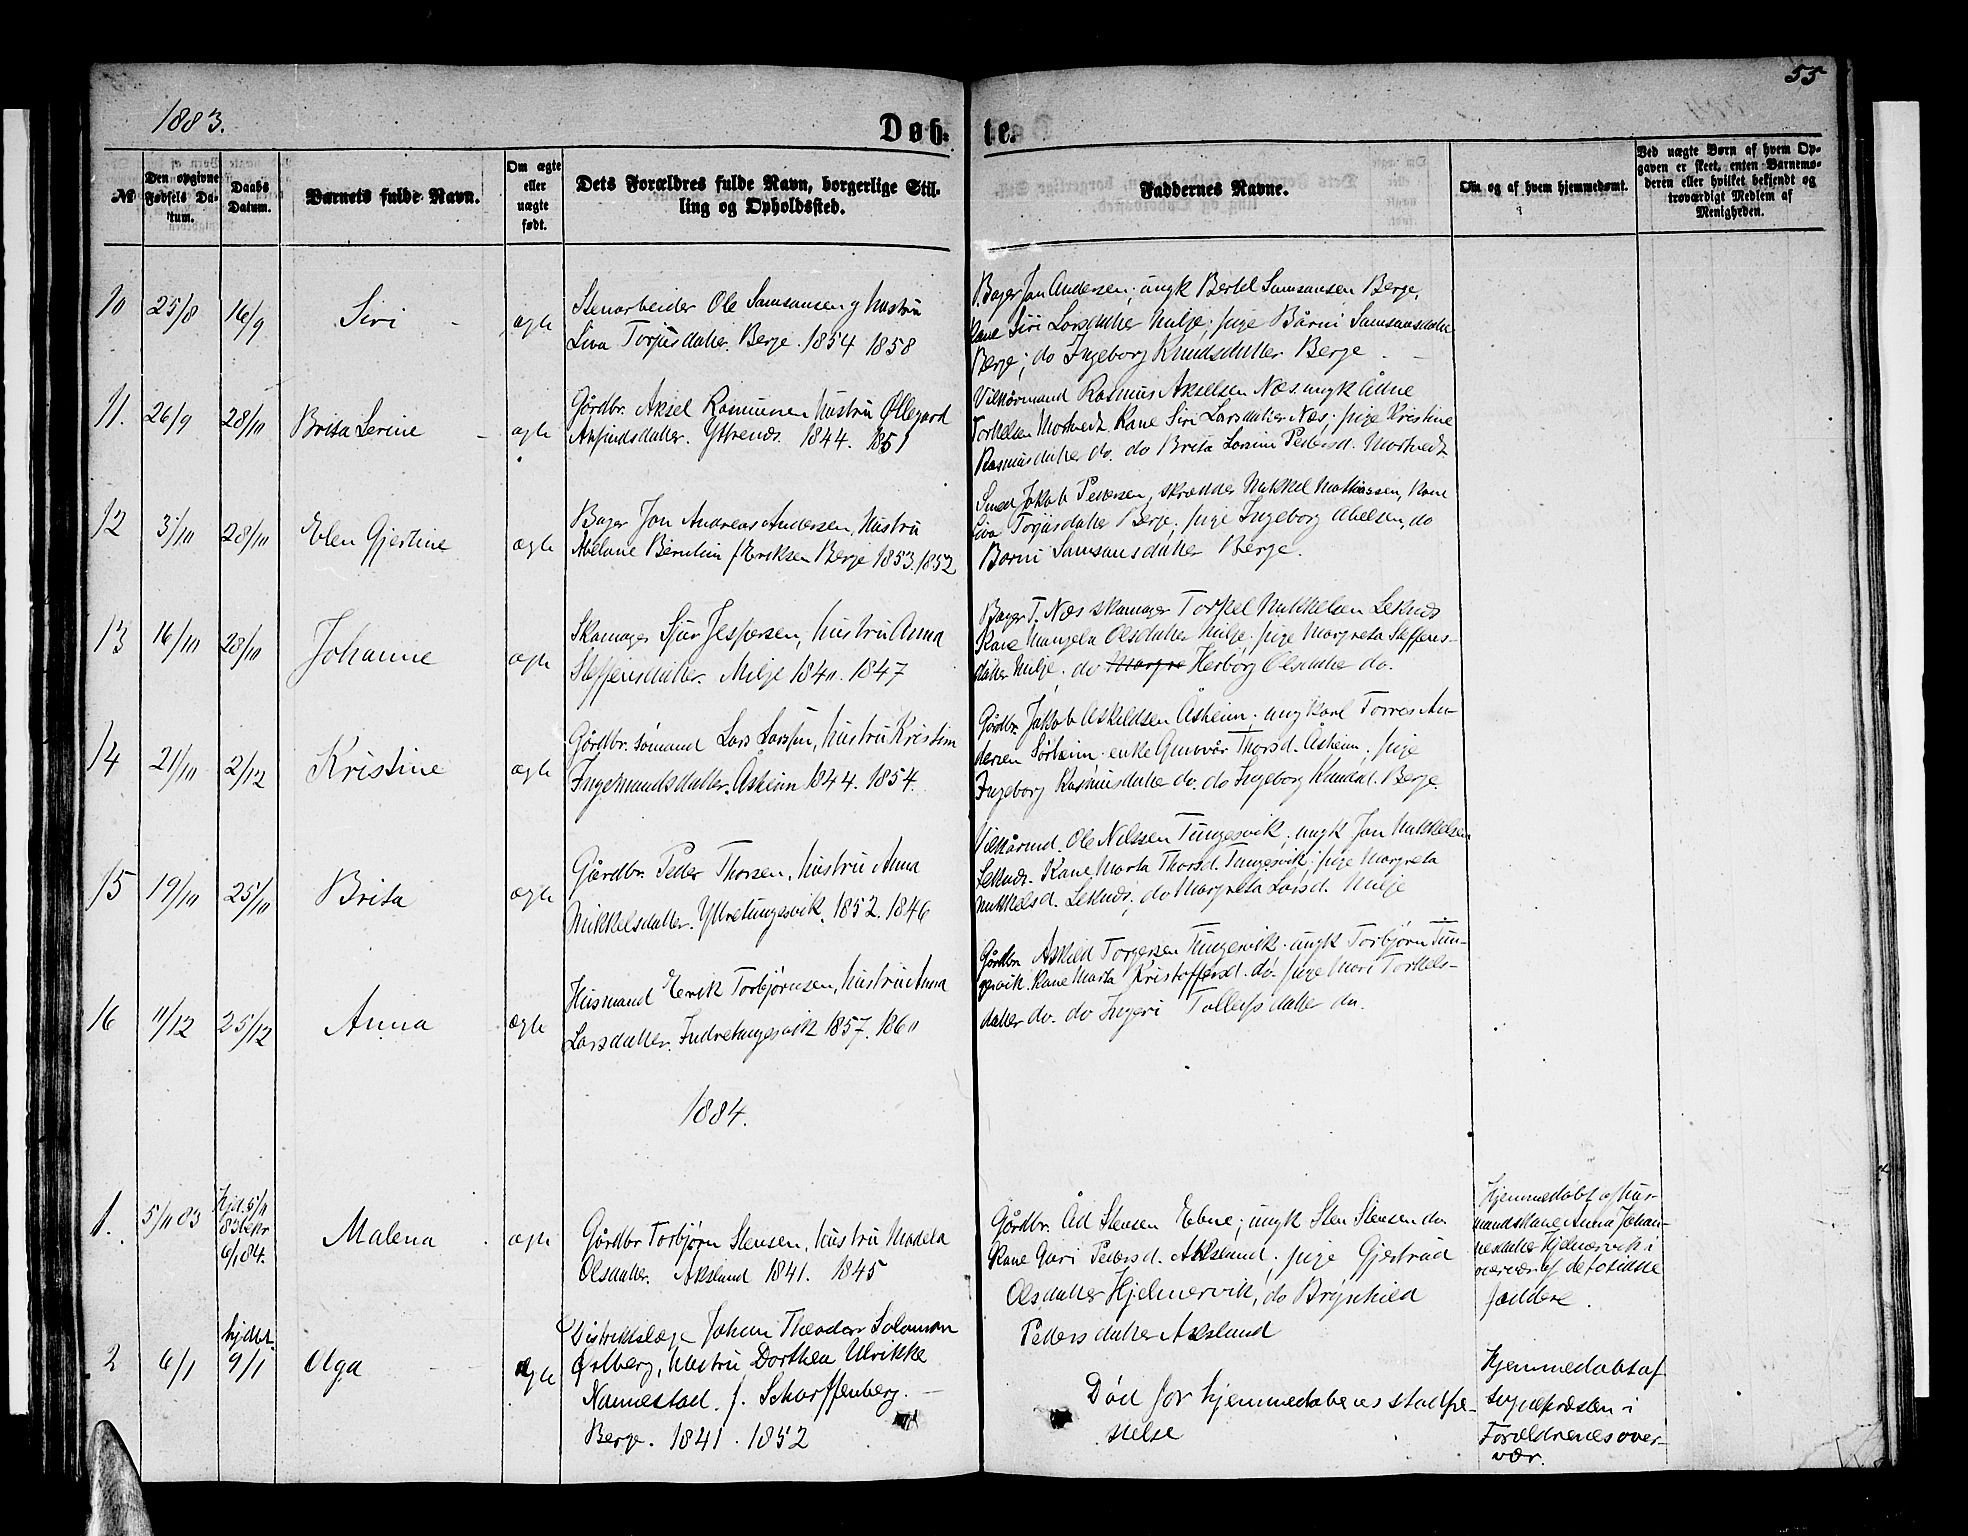 55
1883.
Døb- te.
№
Den opgivne Fødsels Datum.
Daabs Datum.
Barnets fulde Navn.
Om ægte eller uægte født.
Dets Forældres fulde Navn, borgerlige Stilling og Opholdssted.
Faddernes Navne.
Om og af hvem hjemmedøbt.
Ved uægte Børn af hvem Opgaven er skeet, enten Barnemoderen eller hvilket bekjendt og troværdigt Medlem af Menigheden.
10 25/8 16/9 Siri ægte
Stenarbeider Ole Samsonsen og hustru
Siva Torjusdatter. Berge. 1854 1858
Bager Jan Andersen; ungk Bertel Samsonsen Berge,
Kane Siri Larsdatter Milje; pige Bårni Samsonsdatter
Berge; do Ingeborg Knudsdatter Berge
11. 26/9 28/10 Brita Serine ægte
Gårdbr. Aksel Rasmussen hustru Øllegard
Anfindsdatter. Yttrenæs. 1844. 1851
Vilkårmand Rasmus Akselsen Næs. ungk Ådne
Torkelsen Mortvedt Kane Siri Larsdatter Næs; pige Kristine
Rasmusdatter do. do Brita Pedersd. Mortvedt
12 3/10 28/10 Elen Gjertine ægte
Bager Jan Andreas Andersen, hustru
Abelane f. Eriksen Berge 1853. 1852
Smed Jakob Pedersen, skrædder Mikkel Mathiassen, Kane
Siva Torjusdatter Berge; pige Ingeborg Abelsen, do
Borni Samsonsdatter Berge.
13 16/10 28/10 Johanne ægte
Skomager Sjur Jespersen, hustru Anna
Steffensdatter. Milje 1840. 1847
Bager T. Næs skomager Torkel Mikkelsen Leknes
Kane Mangela Olsdatter Milje. pige Margreta Steffens-
datter Milje. do Margre Herborg Olsdatter do.
14 21/10 2/12 Kristine ægte
Gårdbr. sømand Lars Larsen, hustru Kristin
Ingemundsdatter. Åsheim 1844. 1854.
Gårdbr. Jakob Askildsen Åsheim; ungkarl Torres An-
dersen Sørheim. enke Gunvår Thorsd. Åsheim; pige
Ingeborg Rasmusdatter do. do Ingeborg Knudsd. Berge.
15 19/10 25/11 Brita ægte
Gårdbr. Peder Thorsen, hustru Anna
Mikkelsdatter. Yttretungesvik. 1852. 1846
Vilkårmd. Ole Nilssen Tungesvik, ungk Jan Mikkelsen
Leknes. Kane Marta Thorsd. Tungesvik; pige Margreta
Mikkelsd. Leknes; do Margreta Larsd. Milje
16 11/12 25/12 Anna ægte
Husmand Erik Torbjørnsen, hustru Anna
Larsdatter. Indretungesvik 1857. 1860
Gårdbr Askild Torgersen Tungesvik. ungk Torbjørn Tun-
gesvik. Kane Marta Kristoffersd. do. pige Mari Torkels-
datter do. do Ingeri Tollefsdatter do.
1884.
1. 5/11 83 Hjd. 5/11
83 bekr
6/1 84. Malena ægte
Gårdbr Torbjørn Stensen, hustru Madela
Olsdatter. Aksland 1841. 1845
Gårdbr. Åd Stensen Ebne; ungk Sten Stensen do
Kane Guri Pedersd. Aksland. pige Gjertrud
Olsdatter Hjelmervik; do Brynhild
Pedersdatter Aksland
Hjemmedøbt af hus-
mandskane Anna Johan-
nesdatter Hjelmervik i
nærvær af de to sidste
faddere.
2 6/1 hjdbt.
9/1 Olga ægte
Distriktslæge Johan Theodor Salomon
Ørtberg, hustru Dorthea Ulrikke
Nannestad. f. Scharffenberg.
Berge. 1841. 1852
Død før hjemmedåbens stadfæ-
stelse
Hjemmedøbt af
sognepræsten i
Forældrenes over-
vær.